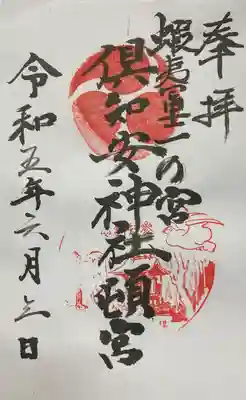 奉拝
蝦夷冨士の宮
倶知安神社頓宮
令和五年六月三日